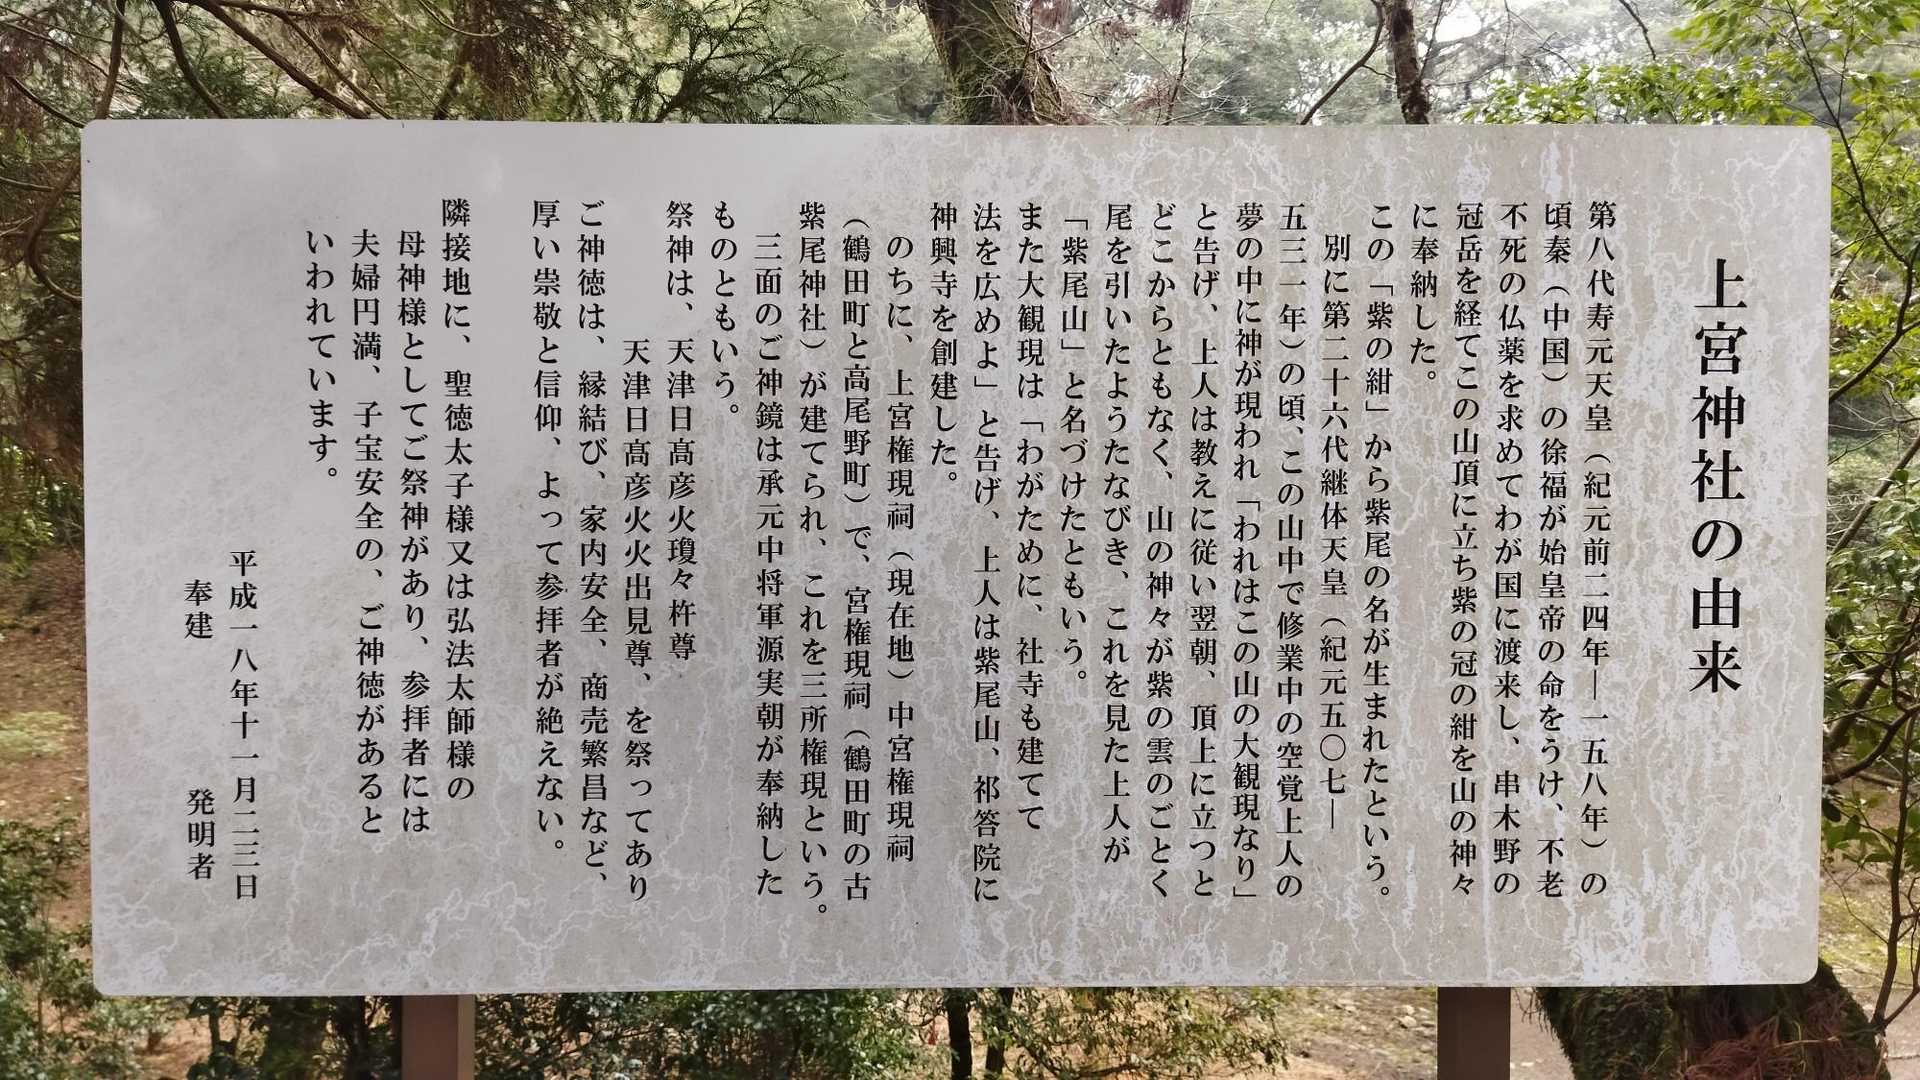 上宮神社の由来
第八代寿元天皇（紀元前二四年―一五八年）の
頃秦（中国）の徐福が始皇帝の命をうけ、不老
不死の仏薬を求めてわが国に渡来し、串木野の
冠岳を経てこの山頂に立ち紫の冠の紺を山の神々
に奉納した。
この「紫の紺」から紫尾の名が生まれたという。
別に第二十六代継体天皇（紀元五〇七―
五三一年）の頃、この山中で修業中の空覚上人の
夢の中に神が現われ「われはこの山の大観現なり」
と告げ、上人は教えに従い翌朝、頂上に立つと
どこからともなく、山の神々が紫の雲のごとく
尾を引いたようたなびき、これを見た上人が
「紫尾山」と名づけたともいう。
また大観現は「わがために、社寺も建てて
法を広めよ」と告げ、上人は紫尾山、祁答院に
神興寺を創建した。
のちに、上宮権現祠（現在地）中宮権現祠
（鶴田町と高尾野町）で、宮権現祠（鶴田町の古
紫尾神社）が建てられ、これを三所権現という。
三面のご神鏡は承元中将軍源実朝が奉納した
ものともいう。
祭神は、天津日髙彦火瓊々杵尊
天津日髙彦火火出見尊、を祭ってあり
ご神徳は、縁結び、家内安全、商売繁昌など、
厚い崇敬と信仰、よって参拝者が絶えない。
隣接地に、聖徳太子様又は弘法太師様の
母神様としてご祭神があり、参拝者には
夫婦円満、子宝安全の、ご神徳があると
いわれています。
平成一八年十一月二三日
奉建　発明者